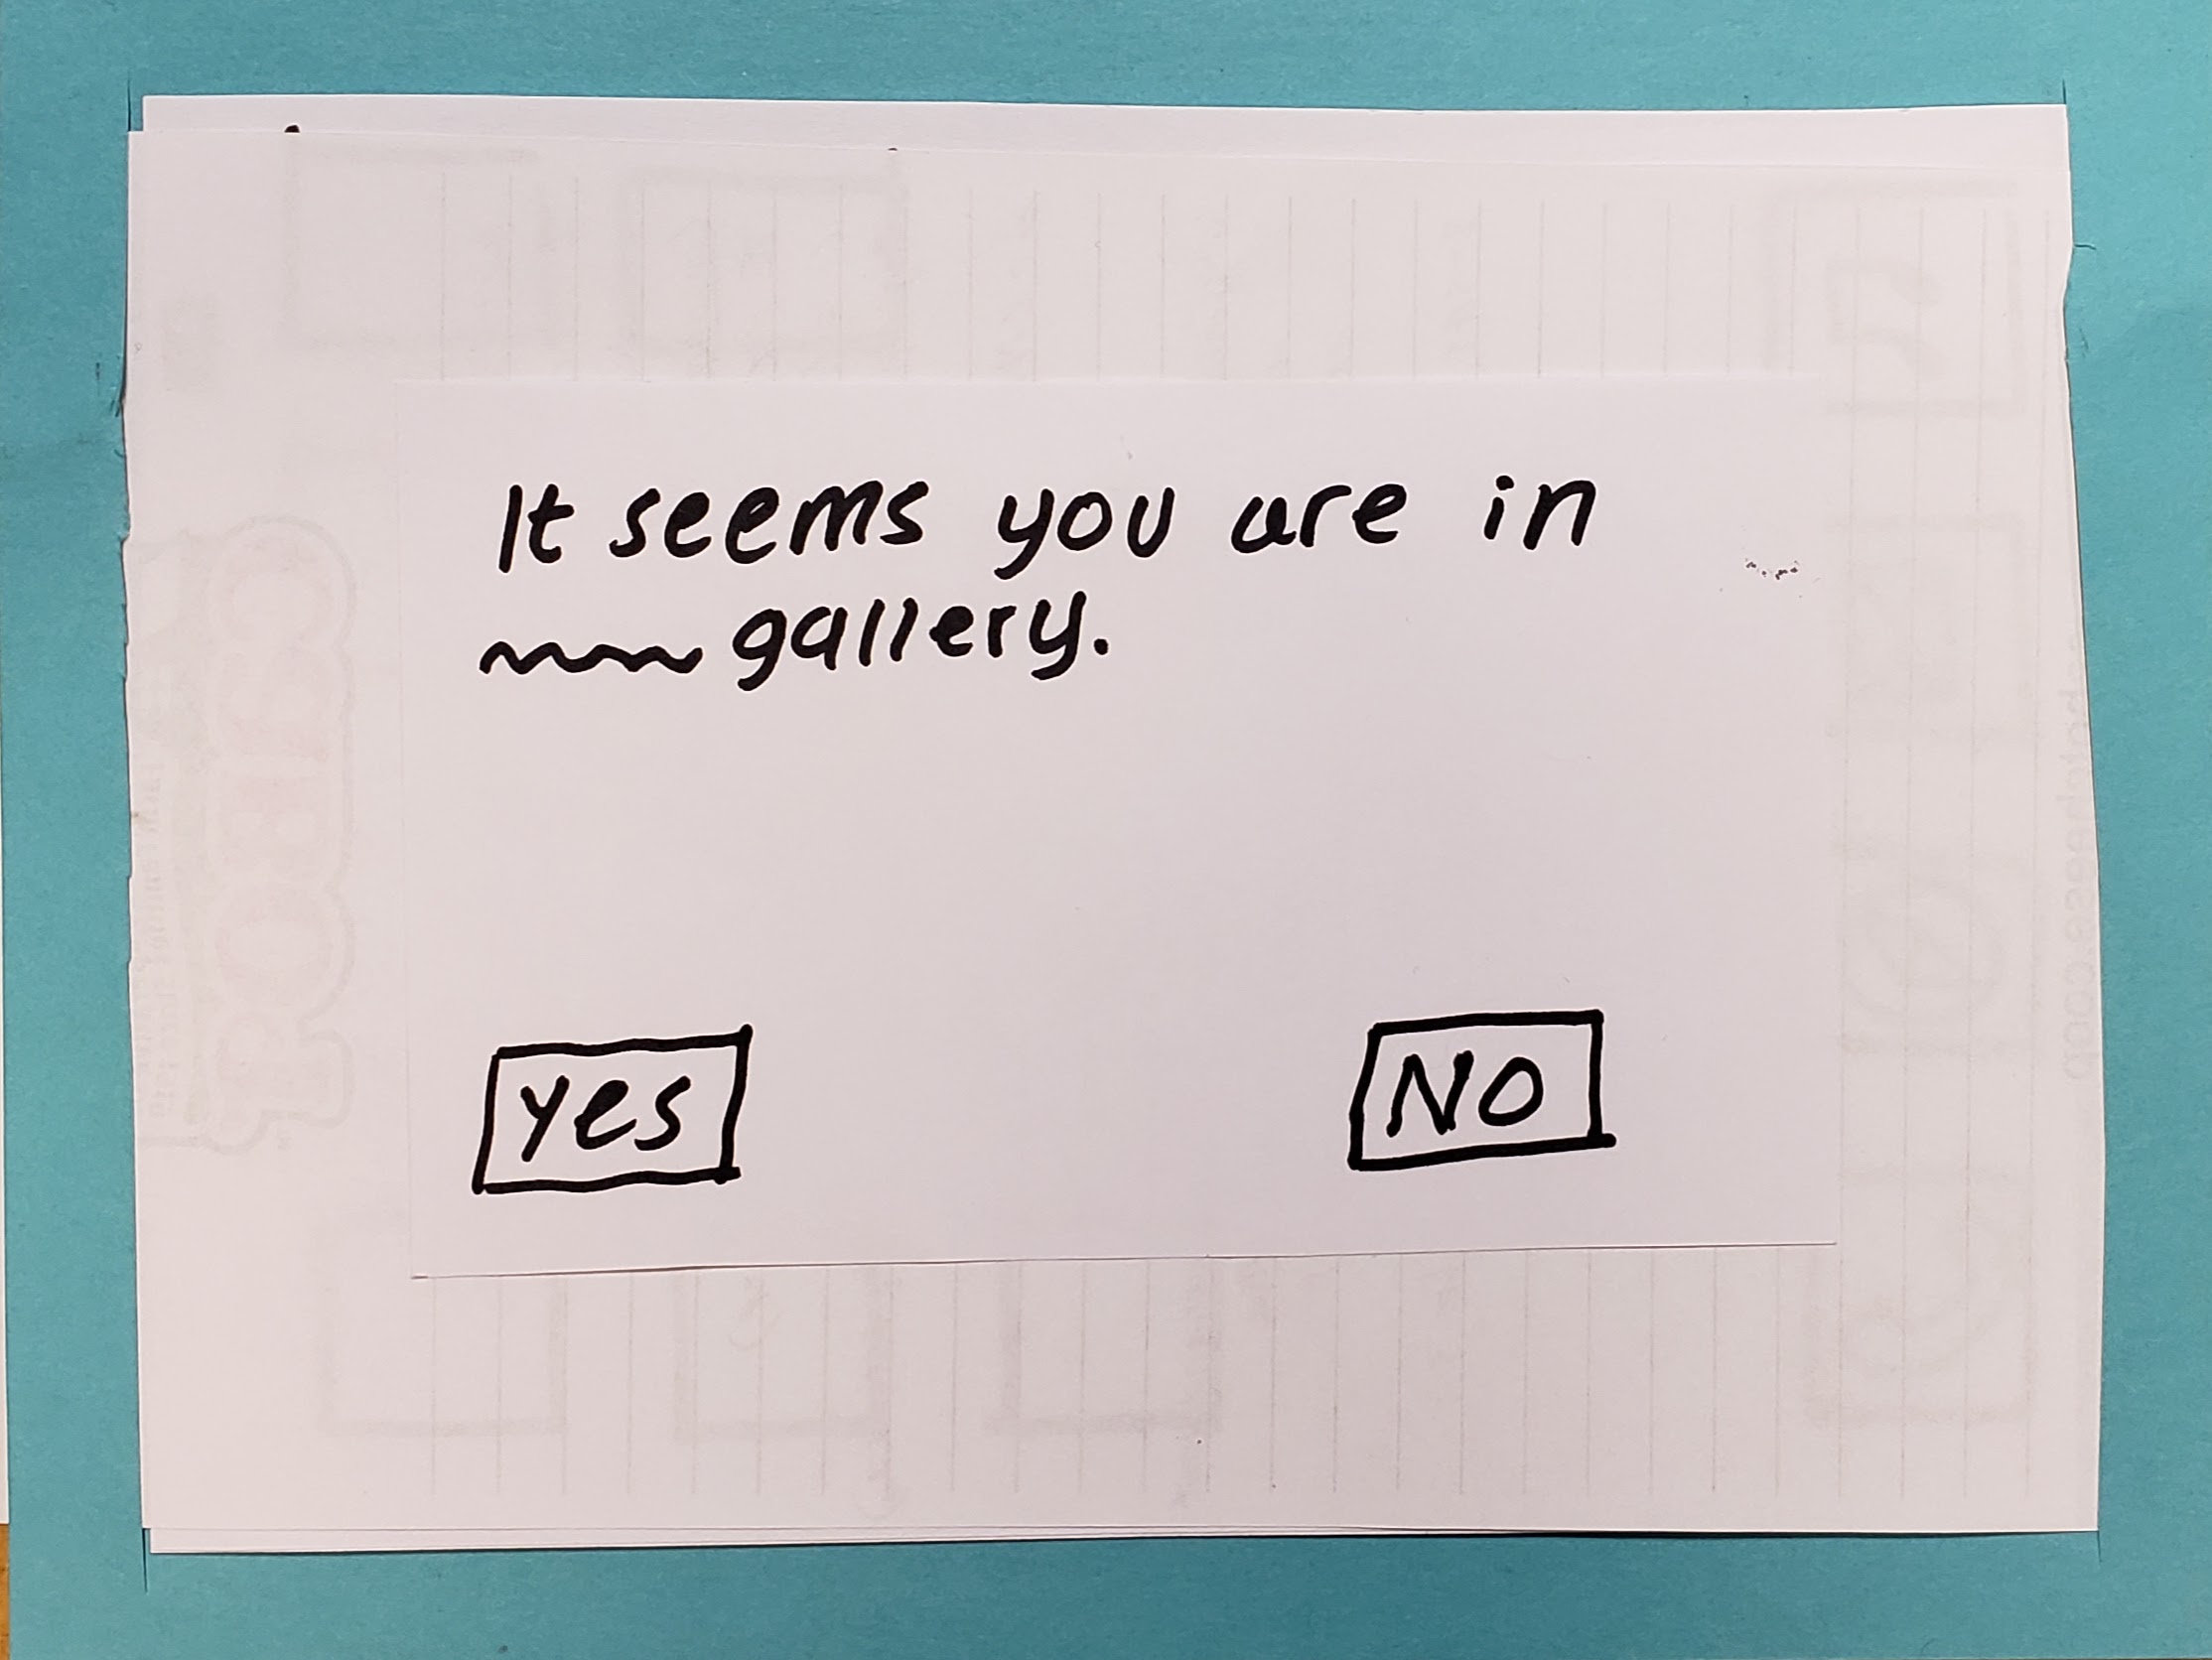 It seems you are in
gallery.
yes
NO